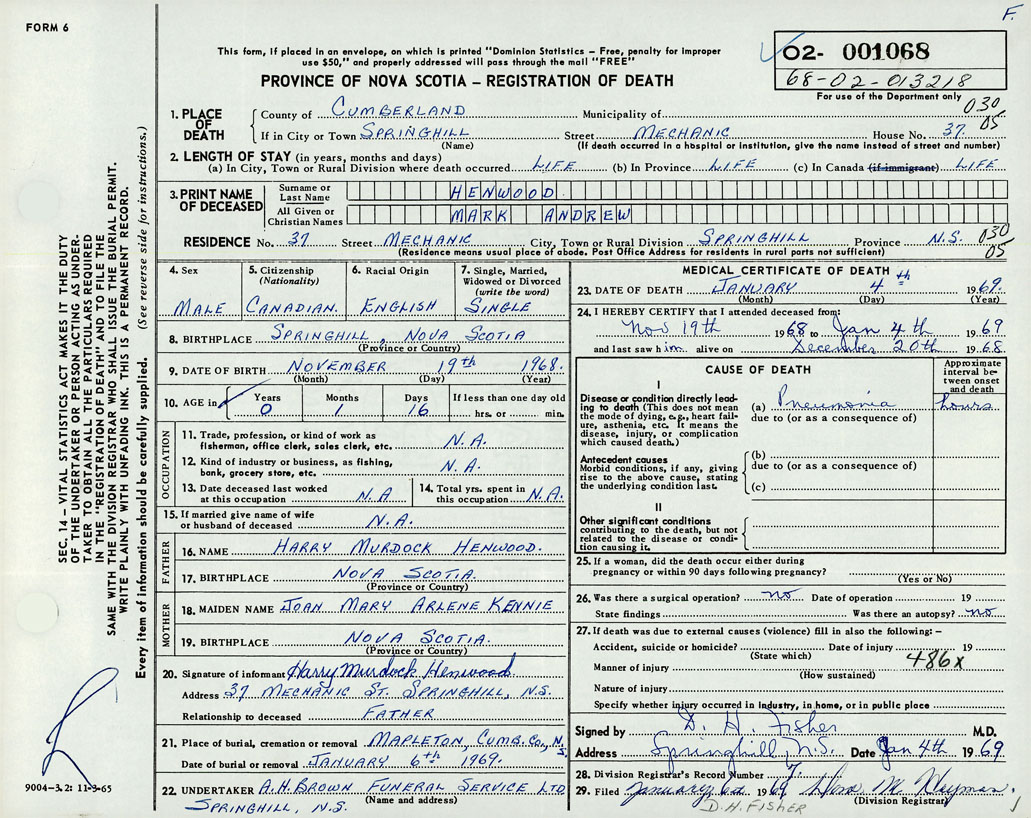 F.
FORM 6
This form, if placed in an envelope, on which is printed "Dominion Statistics – Free, penalty for improper
use $50," and properly addressed will pass through the mail "FREE"
PROVINCE OF NOVA SCOTIA – REGISTRATION OF DEATH
02- 001068
68-02-013218
For use of the Department only
030
05
SEC. 14 – VITAL STATISTICS ACT MAKES IT THE DUTY
OF THE UNDERTAKER OR PERSON ACTING AS UNDER-
TAKER TO OBTAIN ALL THE PARTICULARS REQUIRED
IN THE "REGISTRATION OF DEATH" AND TO FILE THE
SAME WITH THE DIVISION REGISTRAR WHO SHALL ISSUE THE BURIAL PERMIT.
WRITE PLAINLY WITH UNFADING INK. THIS IS A PERMANENT RECORD.
Every item of information should be carefully supplied. (See reverse side for instructions.)
1. PLACE OF DEATH
County of CUMBERLAND Municipality of
If in City or Town SPRINGHILL Street MECHANIC House No. 37
(Name) (If death occurred in a hospital or institution, give the name instead of street and number)
2. LENGTH OF STAY (in years, months and days)
(a) In City, Town or Rural Division where death occurred LIFE (b) In Province LIFE (c) In Canada (if immigrant) LIFE
3. PRINT NAME OF DECEASED
Surname or Last Name HENWOOD
All Given or Christian Names MARK ANDREW
RESIDENCE No. 37 Street MECHANIC City, Town or Rural Division SPRINGHILL Province N.S. 030
05
(Residence means usual place of abode. Post Office Address for residents in rural parts not sufficient)
4. Sex
MALE
5. Citizenship (Nationality)
CANADIAN
6. Racial Origin
ENGLISH
7. Single, Married, Widowed or Divorced (write the word)
SINGLE
8. BIRTHPLACE SPRINGHILL, NOVA SCOTIA
(Province or Country)
9. DATE OF BIRTH NOVEMBER 19th 1968.
(Month) (Day) (Year)
10. AGE in Years Months Days If less than one day old
0 1 16 hrs. or min.
OCCUPATION
11. Trade, profession, or kind of work as
fisherman, office clerk, sales clerk, etc. N.A.
12. Kind of industry or business, as fishing,
bank, grocery store, etc. N.A.
13. Date deceased last worked
at this occupation N.A
14. Total yrs. spent in
this occupation N.A.
15. If married give name of wife
or husband of deceased N.A.
FATHER
16. NAME HARRY MURDOCK HENWOOD.
17. BIRTHPLACE NOVA SCOTIA
(Province or Country)
MOTHER
18. MAIDEN NAME JOAN MARY ARLENE KENNIE
19. BIRTHPLACE NOVA SCOTIA.
(Province or Country)
20. Signature of informant Harry Murdock Henwood
Address 37 MECHANIC ST. SPRINGHILL, N.S.
Relationship to deceased FATHER
21. Place of burial, cremation or removal MAPLETON, CUMB. CO., N.S.
Date of burial or removal JANUARY 6th 1969.
22. UNDERTAKER A.H. BROWN FUNERAL SERVICE LTD
(Name and address)
SPRINGHILL, N.S.
9004-3.2: 11-3-65
MEDICAL CERTIFICATE OF DEATH
23. DATE OF DEATH JANUARY 4th 1969.
(Month) (Day) (Year)
24. I HEREBY CERTIFY that I attended deceased from:
Nov 19th 1968 to Jan 4th 1969
and last saw him alive on December 20th 1968
CAUSE OF DEATH
Approximate interval between onset and death
I
Disease or condition directly lead-
ing to death (This does not mean
the mode of dying, e.g., heart fail-
ure, asthenia, etc. It means the
disease, injury, or complication
which caused death.)
(a) Pneumonia hours
due to (or as a consequence of)
Antecedent causes
Morbid conditions, if any, giving
rise to the above cause, stating
the underlying condition last.
(b)
due to (or as a consequence of)
(c)
II
Other significant conditions
contributing to the death, but not
related to the disease or condi-
tion causing it.
25. If a woman, did the death occur either during
pregnancy or within 90 days following pregnancy?
(Yes or No)
26. Was there a surgical operation? no Date of operation 19
State findings Was there an autopsy? no
27. If death was due to external causes (violence) fill in also the following: –
Accident, suicide or homicide? Date of injury 19
(State which) 486x
Manner of injury
(How sustained)
Nature of injury
Specify whether injury occurred in industry, in home, or in public place
Signed by D. H. Fisher M.D.
Address Springhill, N.S. Date Jan 4th 1969
28. Division Registrar's Record Number
29. Filed January 6th 1969
(Division Registrar)
D.H. FISHER